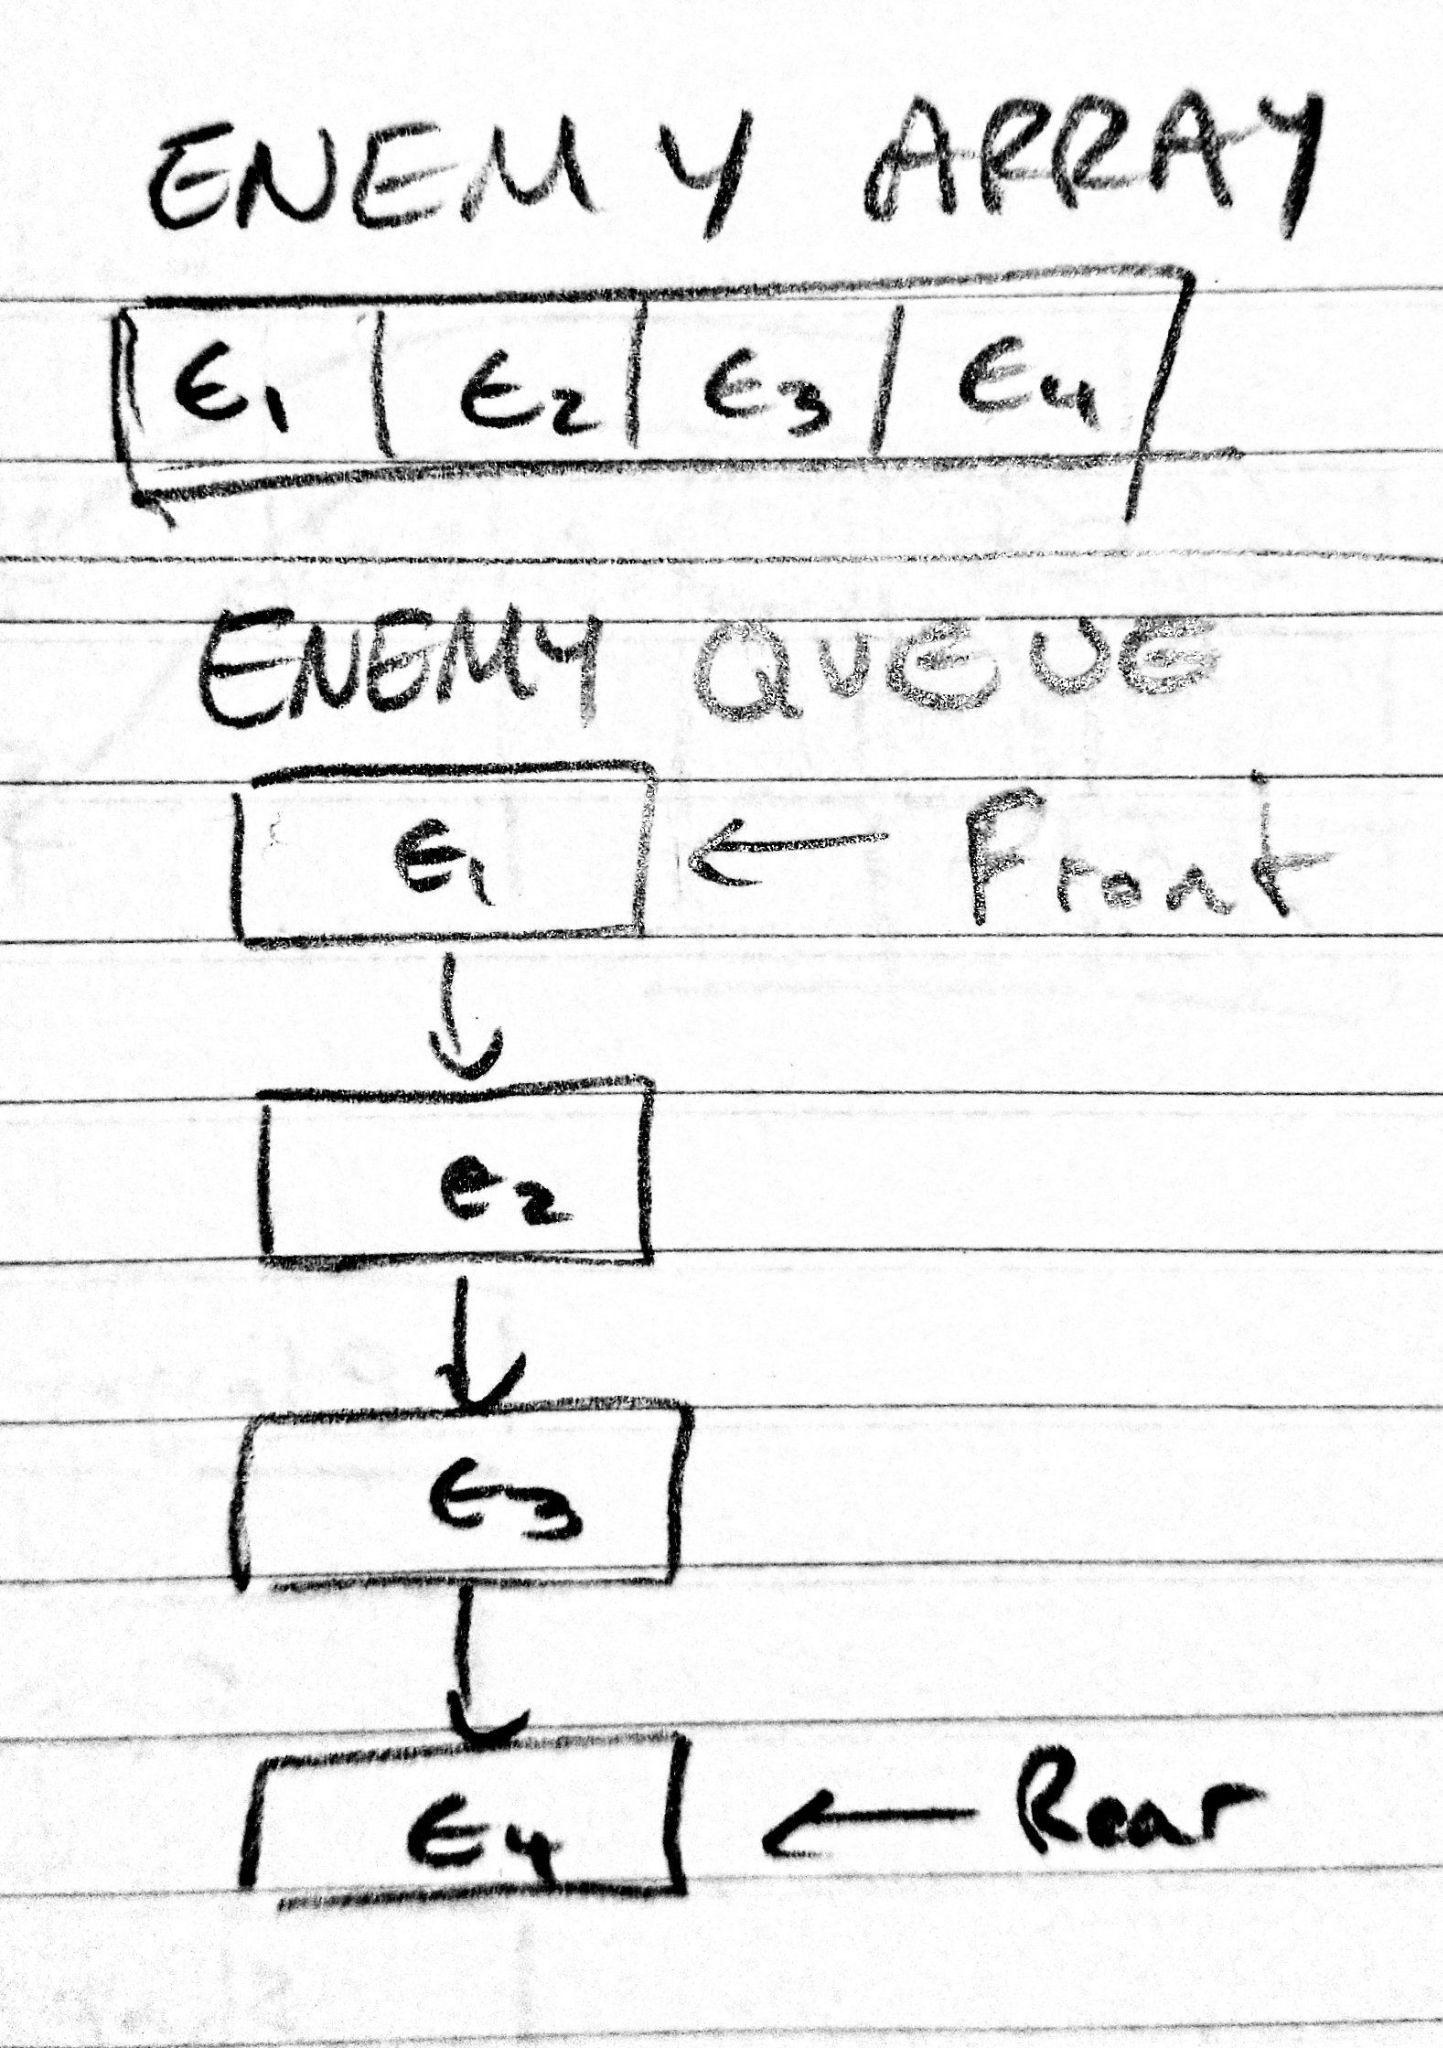 ENEMY ARRAY
E1 E2 E3 E4
ENEMY QUEUE
E1 ← Front
E2
E3
E4 ← Rear